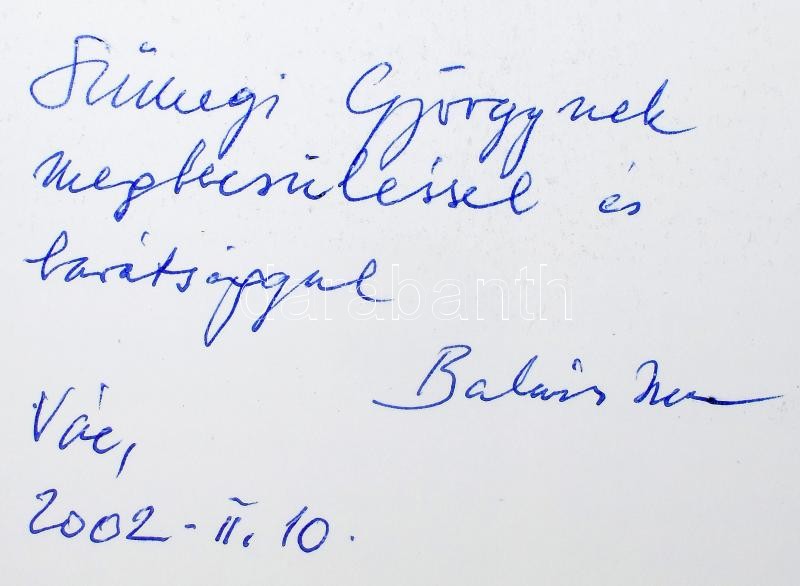 Sümegi Györgynek
megbecsüléssel és
barátsággal
darabanth
Balázs
Vác,
2002 - II. 10.